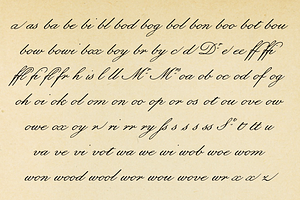 a as ba be bi bl bod bog bol bon boo bot bou
bow bowi box boy br by c d Dr. d ee ff ffi
ffl fi fl fr h is l ll Mr. Mrs. oa ob oc od of og
oh oi ok ol om on oo op or os ot ou ove ow
owe ox oy r ri rr ry s s s s ss St. tt u
va ve vi vot wa we wi wob woe wom
won wood wool wor wou wove wr x x z